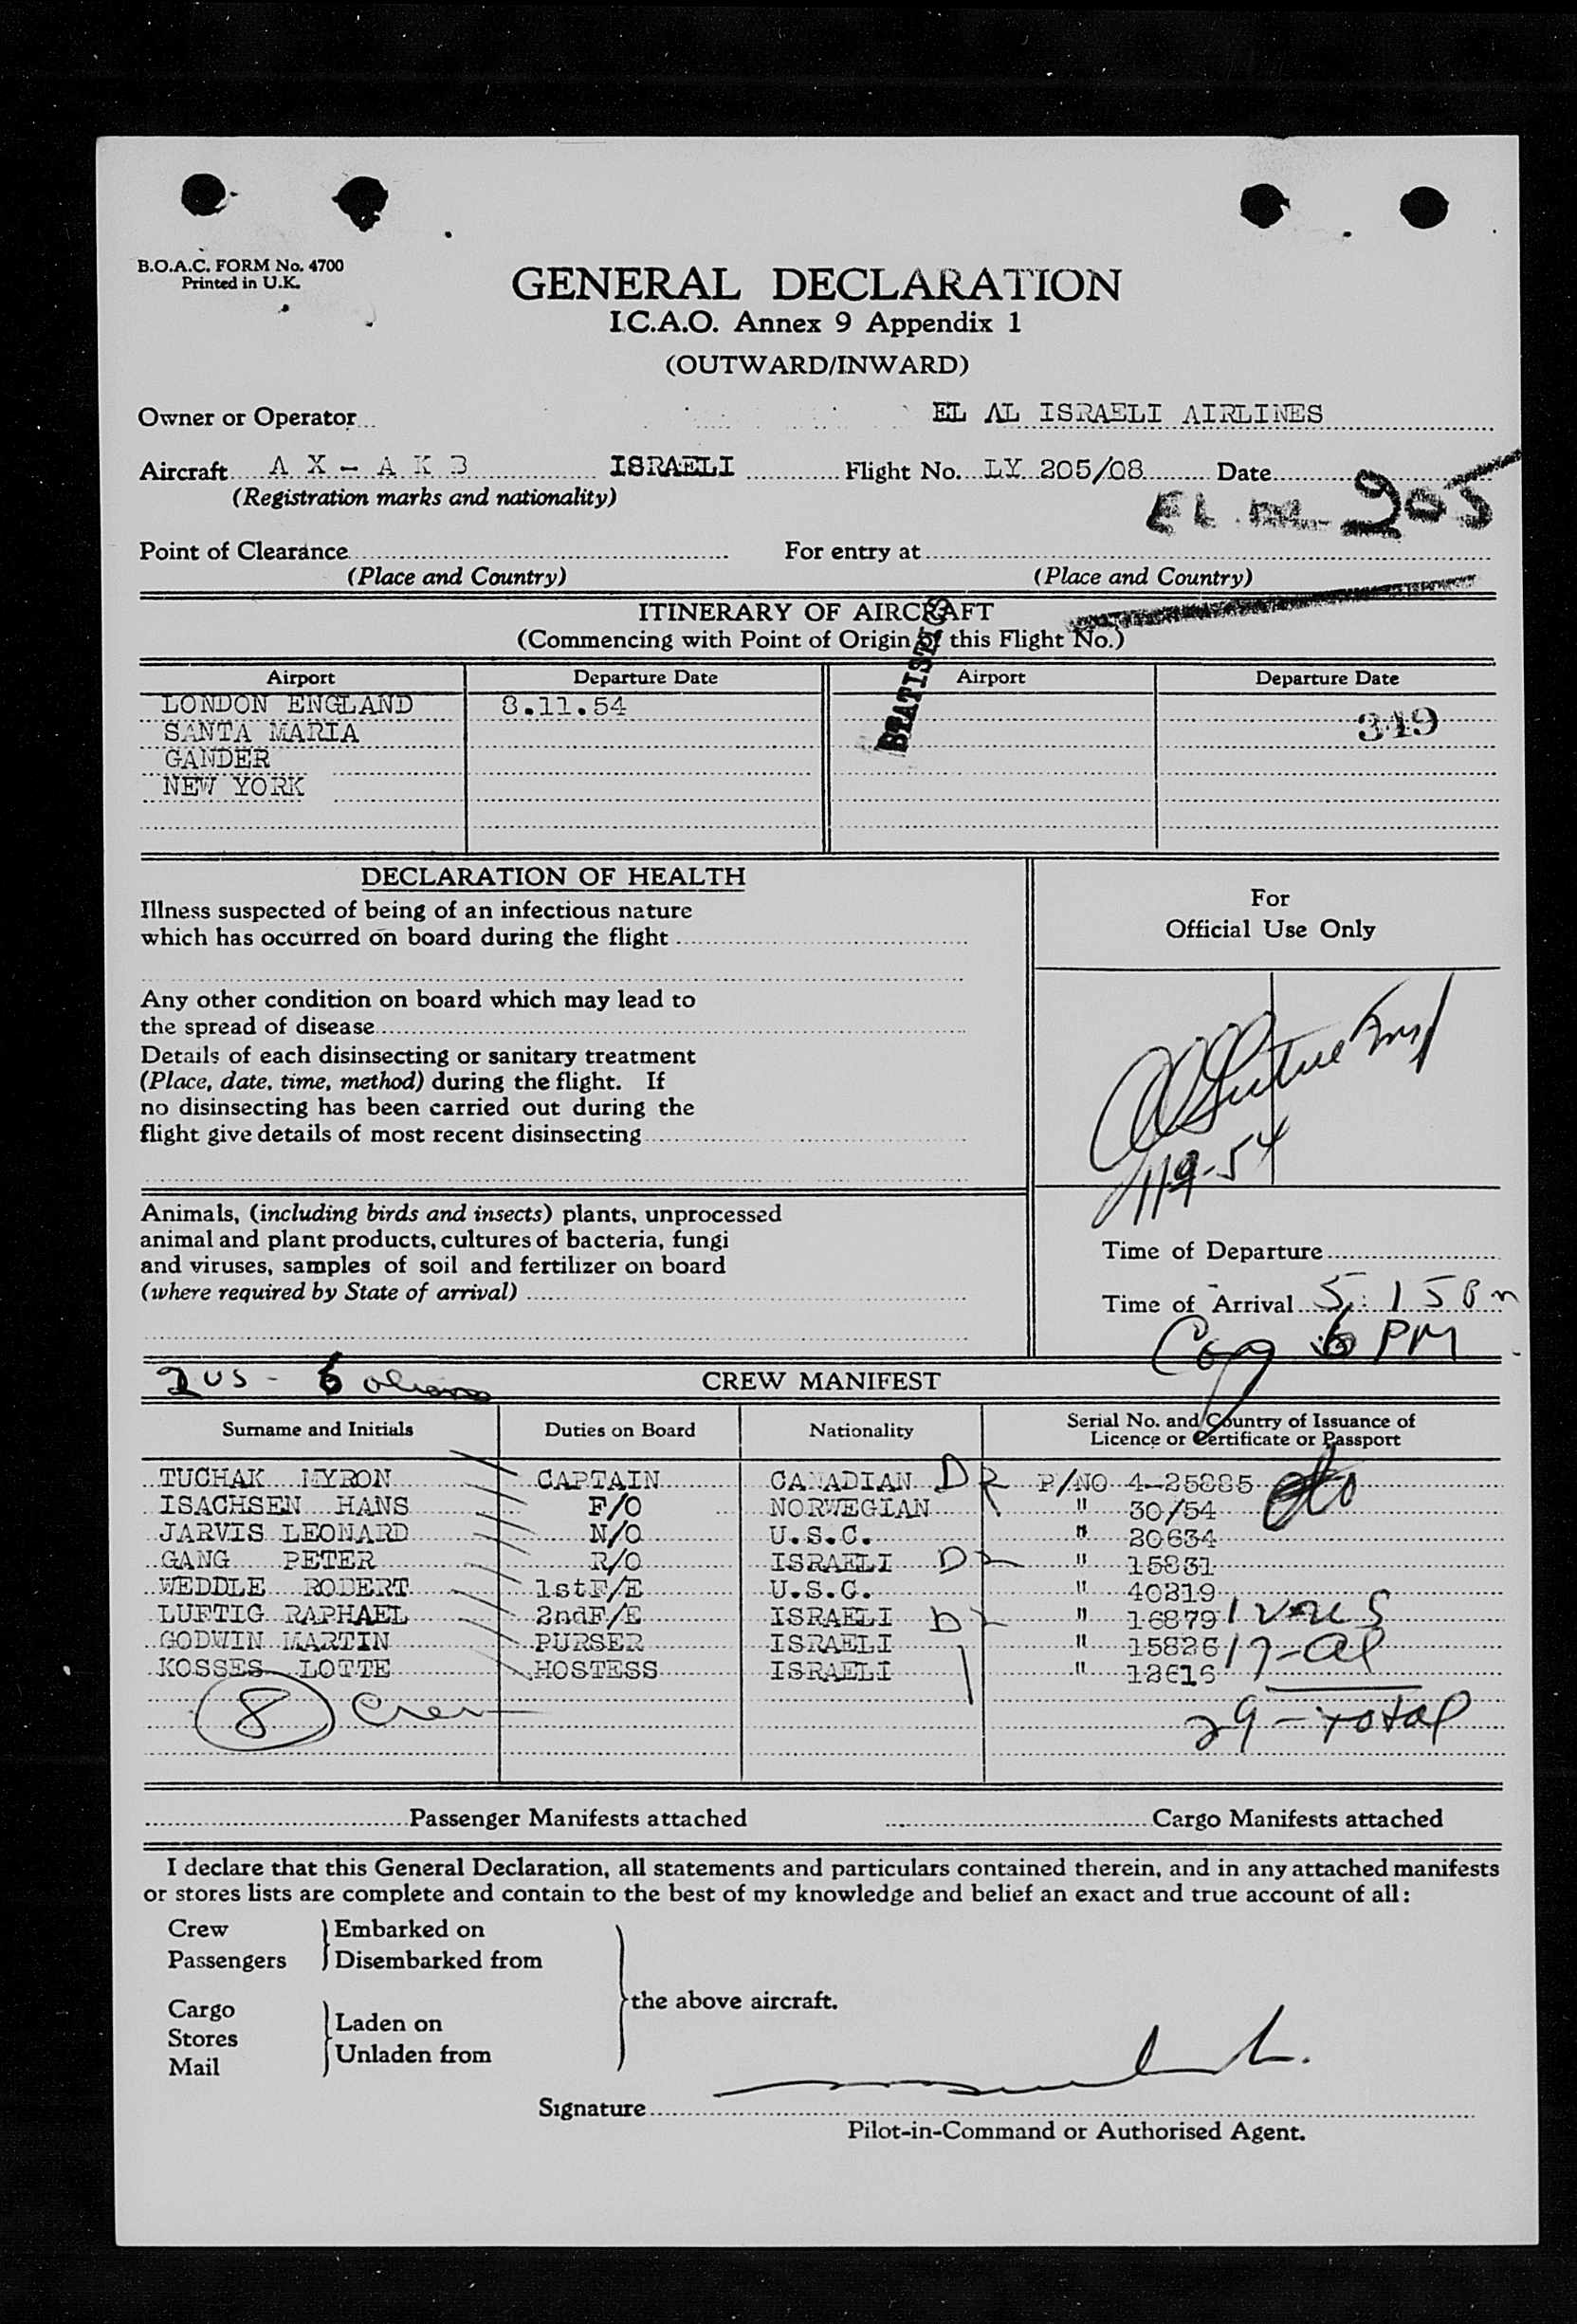 B.O.A.C. FORM No. 4700
Printed in U.K.
GENERAL DECLARATION
I.C.A.O. Annex 9 Appendix 1
(OUTWARD/INWARD)
Owner or Operator EL AL ISRAELI AIRLINES
Aircraft A X - A K B ISRAELI Flight No. LY 205/08 Date
(Registration marks and nationality)
EL AL 205
Point of Clearance For entry at
(Place and Country) (Place and Country)
ITINERARY OF AIRCRAFT
(Commencing with Point of Origin of this Flight No.)
Airport Departure Date Airport Departure Date
LONDON ENGLAND 8.11.54
SANTA MARIA 349
GANDER
NEW YORK
DECLARATION OF HEALTH
Illness suspected of being of an infectious nature
which has occurred on board during the flight
Any other condition on board which may lead to
the spread of disease
Details of each disinsecting or sanitary treatment
(Place, date, time, method) during the flight. If
no disinsecting has been carried out during the
flight give details of most recent disinsecting
For
Official Use Only
11-9-54
Animals, (including birds and insects) plants, unprocessed
animal and plant products, cultures of bacteria, fungi
and viruses, samples of soil and fertilizer on board
(where required by State of arrival)
Time of Departure
Time of Arrival 5:15 Pm
6 PM
2 US - 6 aliens
CREW MANIFEST
Surname and Initials Duties on Board Nationality Serial No. and Country of Issuance of
Licence or Certificate or Passport
TUCHAK MYRON CAPTAIN CANADIAN D2 P/NO 4-25885
ISACHSEN HANS F/O NORWEGIAN " 30/54
JARVIS LEONARD N/O U.S.C. " 20634
GANG PETER R/O ISRAELI D2 " 15831
WEDDLE ROBERT 1stF/E U.S.C. " 40219
LUFTIG RAPHAEL 2ndF/E ISRAELI D2 " 16879
GODWIN MARTIN PURSER ISRAELI " 15826 17-al
KOSSES LOTTE HOSTESS ISRAELI " 12616
8 Crew 29-total
Passenger Manifests attached Cargo Manifests attached
I declare that this General Declaration, all statements and particulars contained therein, and in any attached manifests
or stores lists are complete and contain to the best of my knowledge and belief an exact and true account of all:
Crew Embarked on
Passengers Disembarked from
the above aircraft.
Cargo
Stores Laden on
Mail Unladen from
Signature
Pilot-in-Command or Authorised Agent.